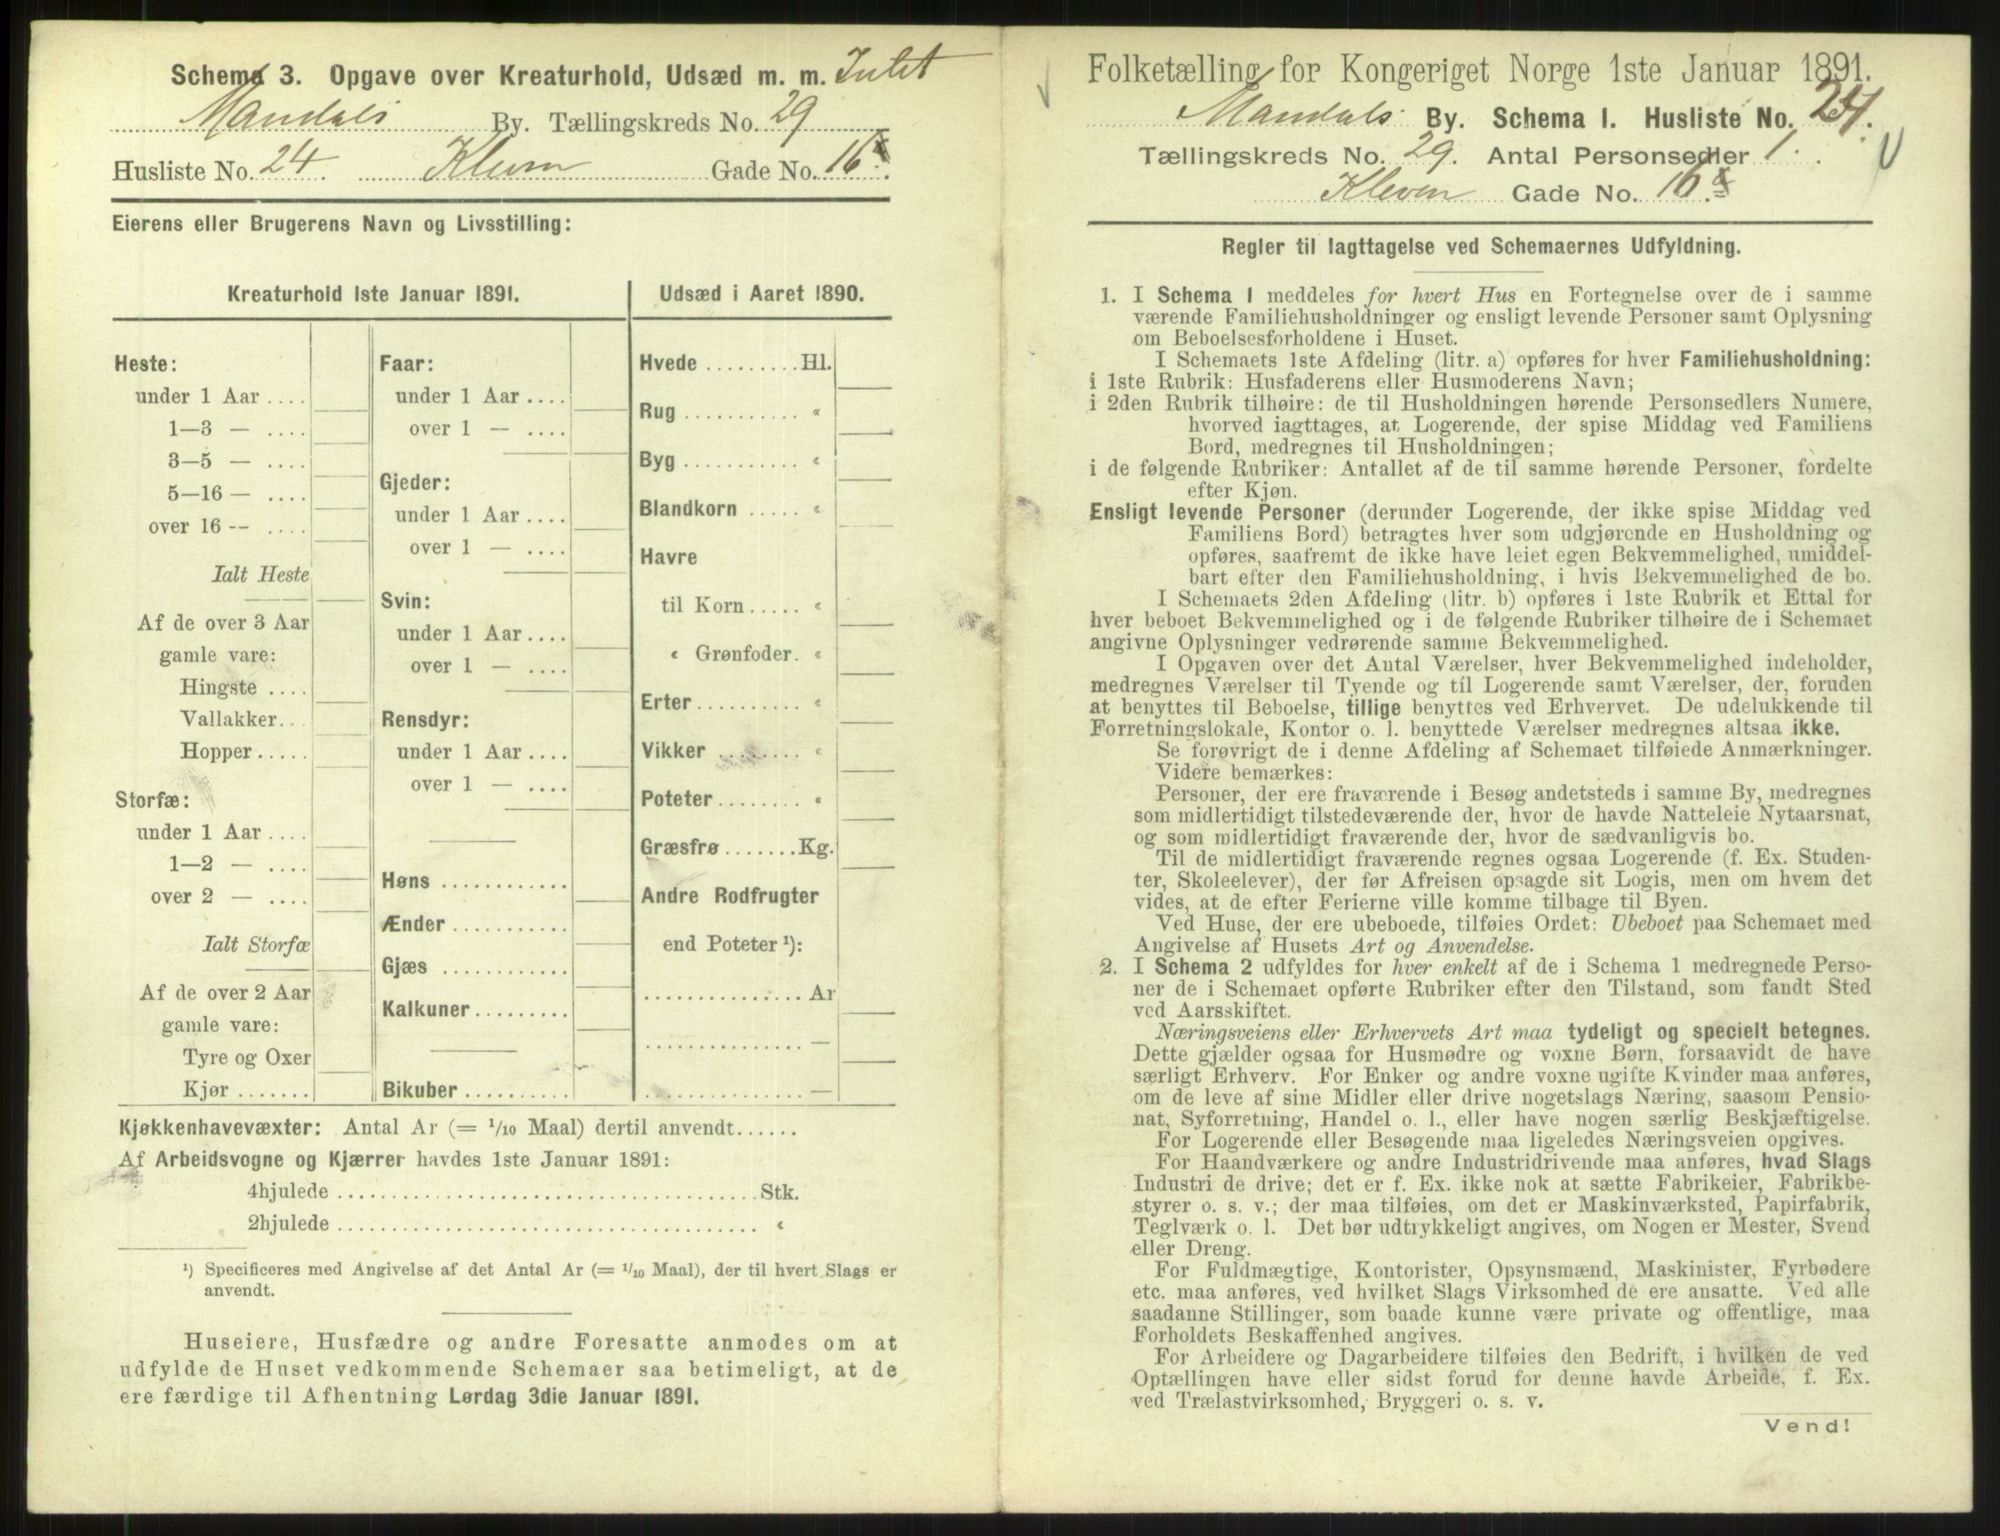 Schema 3. Opgave over Kreaturhold, Udsæd m. m. Intet
Mandals By. Tællingskreds No. 29
Husliste No. 24. Kleven Gade No. 16
Eierens eller Brugerens Navn og Livsstilling:
Kreaturhold 1ste Januar 1891.
Heste:
under 1 Aar ....
1—3 — ....
3—5 — ....
5—16 — ....
over 16 -- ....
Ialt Heste
Af de over 3 Aar
gamle vare:
Hingste ....
Vallakker...
Hopper.....
Storfæ:
under 1 Aar ....
1—2 — ....
over 2 — ....
Ialt Storfæ
Af de over 2 Aar
gamle vare:
Tyre og Oxer
Kjør........
Faar:
under 1 Aar ....
over 1 — ....
Gjeder:
under 1 Aar ....
over 1 — ....
Svin:
under 1 Aar ....
over 1 — ....
Rensdyr:
under 1 Aar ....
over 1 — ....
Høns ............
Ænder ...........
Gjæs ............
Kalkuner.........
Bikuber ..........
Udsæd i Aaret 1890.
Hvede .........Hl.
Rug ........... "
Byg ........... "
Blandkorn ..... "
Havre
til Korn..... "
" Grønfoder. "
Erter.......... "
Vikker ........ "
Poteter........ "
Græsfrø .......Kg.
Andre Rodfrugter
end Poteter ¹):
............... Ar
............... —
............... —
Kjøkkenhavevæxter: Antal Ar (= 1/10 Maal) dertil anvendt......
Af Arbeidsvogne og Kjærrer havdes 1ste Januar 1891:
4hjulede ........................................Stk.
2hjulede ........................................ "
¹) Specificeres med Angivelse af det Antal Ar (= 1/10 Maal), der til hvert Slags er
anvendt.
Huseiere, Husfædre og andre Foresatte anmodes om at
udfylde de Huset vedkommende Schemaer saa betimeligt, at de
ere færdige til Afhentning Lørdag 3die Januar 1891.
Folketælling for Kongeriget Norge 1ste Januar 1891.
Mandals By. Schema 1. Husliste No. 24.
Tællingskreds No. 29. Antal Personsedler 1.
Kleven Gade No. 16
Regler til Iagttagelse ved Schemaernes Udfyldning.
1. I Schema 1 meddeles for hvert Hus en Fortegnelse over de i samme
værende Familiehusholdninger og ensligt levende Personer samt Oplysning
om Beboelsesforholdene i Huset.
I Schemaets 1ste Afdeling (litr. a) opføres for hver Familiehusholdning:
i 1ste Rubrik: Husfaderens eller Husmoderens Navn;
i 2den Rubrik tilhøire: de til Husholdningen hørende Personsedlers Numere,
hvorved iagttages, at Logerende, der spise Middag ved Familiens
Bord, medregnes til Husholdningen;
i de følgende Rubriker: Antallet af de til samme hørende Personer, fordelte
efter Kjøn.
Ensligt levende Personer (derunder Logerende, der ikke spise Middag ved
Familiens Bord) betragtes hver som udgjørende en Husholdning og
opføres, saafremt de ikke have leiet egen Bekvemmelighed, umiddel-
bart efter den Familiehusholdning, i hvis Bekvemmelighed de bo.
I Schemaets 2den Afdeling (litr. b) opføres i 1ste Rubrik et Ettal for
hver beboet Bekvemmelighed og i de følgende Rubriker tilhøire de i Schemaet
angivne Oplysninger vedrørende samme Bekvemmelighed.
I Opgaven over det Antal Værelser, hver Bekvemmelighed indeholder,
medregnes Værelser til Tyende og til Logerende samt Værelser, der, foruden
at benyttes til Beboelse, tillige benyttes ved Erhvervet. De udelukkende til
Forretningslokale, Kontor o. l. benyttede Værelser medregnes altsaa ikke.
Se forøvrigt de i denne Afdeling af Schemaet tilføiede Anmærkninger.
Videre bemærkes:
Personer, der ere fraværende i Besøg andetsteds i samme By, medregnes
som midlertidigt tilstedeværende der, hvor de havde Natteleie Nytaarsnat,
og som midlertidigt fraværende der, hvor de sædvanligvis bo.
Til de midlertidigt fraværende regnes ogsaa Logerende (f. Ex. Studen-
ter, Skoleelever), der før Afreisen opsagde sit Logis, men om hvem det
vides, at de efter Ferierne ville komme tilbage til Byen.
Ved Huse, der ere ubeboede, tilføies Ordet: Ubeboet paa Schemaet med
Angivelse af Husets Art og Anvendelse.
2. I Schema 2 udfyldes for hver enkelt af de i Schema 1 medregnede Perso-
ner de i Schemaet opførte Rubriker efter den Tilstand, som fandt Sted
ved Aarsskiftet.
Næringsveiens eller Erhvervets Art maa tydeligt og specielt betegnes.
Dette gjælder ogsaa for Husmødre og voxne Børn, forsaavidt de have
særligt Erhverv. For Enker og andre voxne ugifte Kvinder maa anføres,
om de leve af sine Midler eller drive nogetslags Næring, saasom Pensio-
nat, Syforretning, Handel o. l., eller have nogen særlig Beskjæftigelse.
For Logerende eller Besøgende maa ligeledes Næringsveien opgives.
For Haandværkere og andre Industridrivende maa anføres, hvad Slags
Industri de drive; det er f. Ex. ikke nok at sætte Fabrikeier, Fabrikbe-
styrer o. s. v.; der maa tilføies, om det er Maskinværksted, Papirfabrik,
Teglværk o. l. Det bør udtrykkeligt angives, om Nogen er Mester, Svend
eller Dreng.
For Fuldmægtige, Kontorister, Opsynsmænd, Maskinister, Fyrbødere
etc. maa anføres, ved hvilket Slags Virksomhed de ere ansatte. Ved alle
saadanne Stillinger, som baade kunne være private og offentlige, maa
Forholdets Beskaffenhed angives.
For Arbeidere og Dagarbeidere tilføies den Bedrift, i hvilken de ved
Optællingen have eller sidst forud for denne havde Arbeide, f. Ex.
ved Trælastvirksomhed, Bryggeri o. s. v.
Vend!